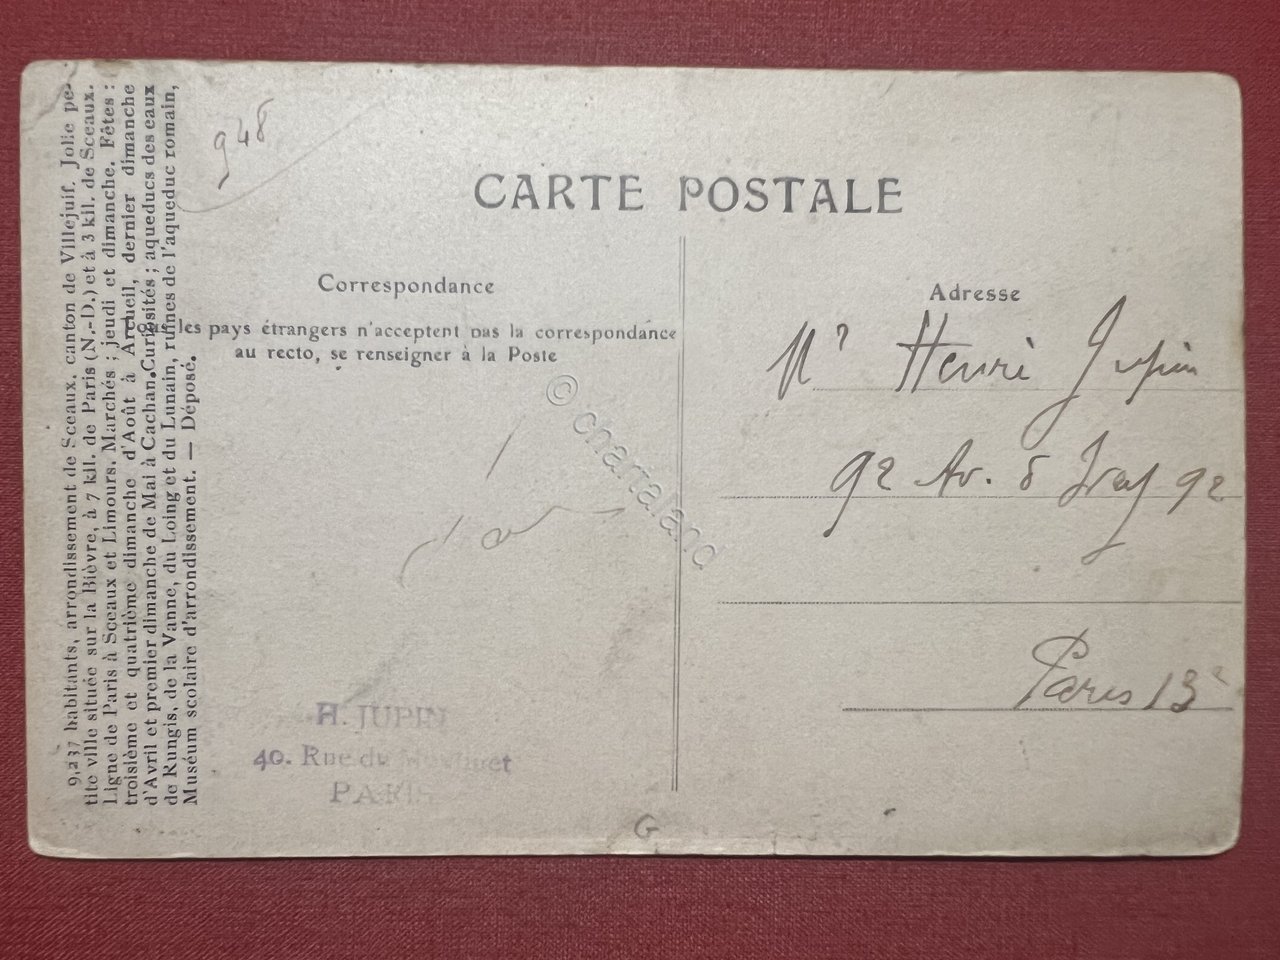 9,237 habitants, arrondissement de Sceaux, canton de Villejuif. Jolie pe-
tite ville située sur la Bièvre, à 7 kil. de Paris (N.-D.) et à 3 kil. de Sceaux.
Ligne de Paris à Sceaux et Limours. Marchés ; jeudi et dimanche. Fêtes :
troisième et quatrième dimanche d'Août à Arcueil, dernier dimanche
d'Avril et premier dimanche de Mai à Cachan. Curiosités ; aqueducs des eaux
de Rungis, de la Vanne, du Loing et du Lunain, ruines de l'aqueduc romain,
Muséum scolaire d'arrondissement. — Déposé.
948
CARTE POSTALE
Correspondance
Tous les pays étrangers n'acceptent pas la correspondance
au recto, se renseigner à la Poste
H. JUPIN
40. Rue du
PARIS
G
Adresse
Mr Henri Jupin
92 Av. d' Ivry 92
Paris 13e
© chartaland